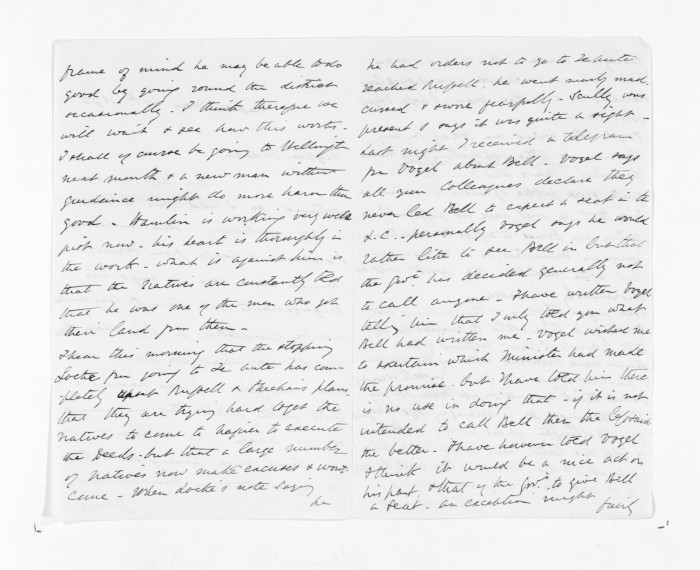 frame of mind he may be able to do
good by going round the district
occasionally. I think therefore we
will wait & see how this works.
I shall of course be going to Wellington
next month & a new man without
guidance might do more harm than
good - Hamlin is working very well
just now - his heart is thoroughly in
the work - what is against him is
that the Natives are constantly told
that he was one of the men who got
their land from them -
I hear this morning that the stopping
Locke from going to Te Aute has com-
pletely upset Russell & Sheehan's plans
that they are trying hard to get the
natives to come to Napier to execute
the Deeds - but that a large number
of natives now make excuses & wont
come - When Locke's note saying
he
he had orders not to go to Te Aute
reached Russell. he went nearly mad.
cursed & swore fearfully - Scully was
present & says it was quite a sight -
Last night I received a telegram
from Vogel about Bell - Vogel says
all your Colleagues declare they
never led Bell to expect a seat in the
L.C. - personally Vogel says he would
rather like to see Bell in but that
the Govt. has decided generally not
to call anyone - I have written Vogel
telling him that I only told you what
Bell had written me - Vogel wished me
to ascertain which Minister had made
the promise - but I have told him there
is no use in doing that - if it is not
intended to call Bell then the less said
the better - I have however told Vogel
I think it would be a nice act on
his part, & that of the Govt. to give Bell
a seat - an exception might fairly